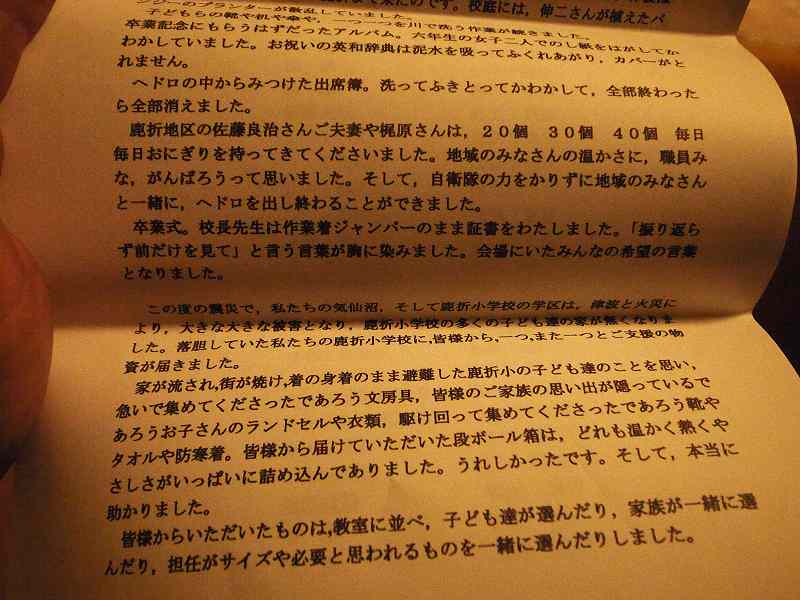 まで来たのです。校庭には，伸二さんが植えたパ
ンジーのプランターが散乱していました。
子どもらの靴や机や傘や， 一つ一つを川で洗う作業が続きました。
卒業記念にもらうはずだったアルバム。六年生の女子二人でのし紙をはがしてか
わかしていました。お祝いの英和辞典は泥水を吸ってふくれあがり，カバーがと
れません。
ヘドロの中からみつけた出席簿。洗ってふきとってかわかして，全部終わった
ら全部消えました。
鹿折地区の佐藤良治さんご夫妻や梶原さんは，２０個　３０個　４０個　毎日
毎日おにぎりを持ってきてくださいました。地域のみなさんの温かさに，職員み
な，がんばろうって思いました。そして，自衛隊の力をかりずに地域のみなさん
と一緒に，ヘドロを出し終わることができました。
卒業式。校長先生は作業着ジャンパーのまま証書をわたしました。「振り返ら
ず前だけを見て」と言う言葉が胸に染みました。会場にいたみんなの希望の言葉
となりました。
この度の震災で，私たちの気仙沼，そして鹿折小学校の学区は，津波と火災に
より，大きな大きな被害となり，鹿折小学校の多くの子ども達の家が無くなりま
した。落胆していた私たちの鹿折小学校に,皆様から,一つ,また一つとご支援の物
資が届きました。
家が流され,街が焼け,着の身着のまま避難した鹿折小の子ども達のことを思い，
急いで集めてくださったであろう文房具，皆様のご家族の思い出が隠っているで
あろうお子さんのランドセルや衣類，駆け回って集めてくださったであろう靴や
タオルや防寒着。皆様から届けていただいた段ボール箱は，どれも温かく熱くや
さしさがいっぱいに詰め込んでありました。うれしかったです。そして，本当に
助かりました。
皆様からいただいたものは,教室に並べ，子ども達が選んだり，家族が一緒に選
んだり，担任がサイズや必要と思われるものを一緒に選んだりしました。